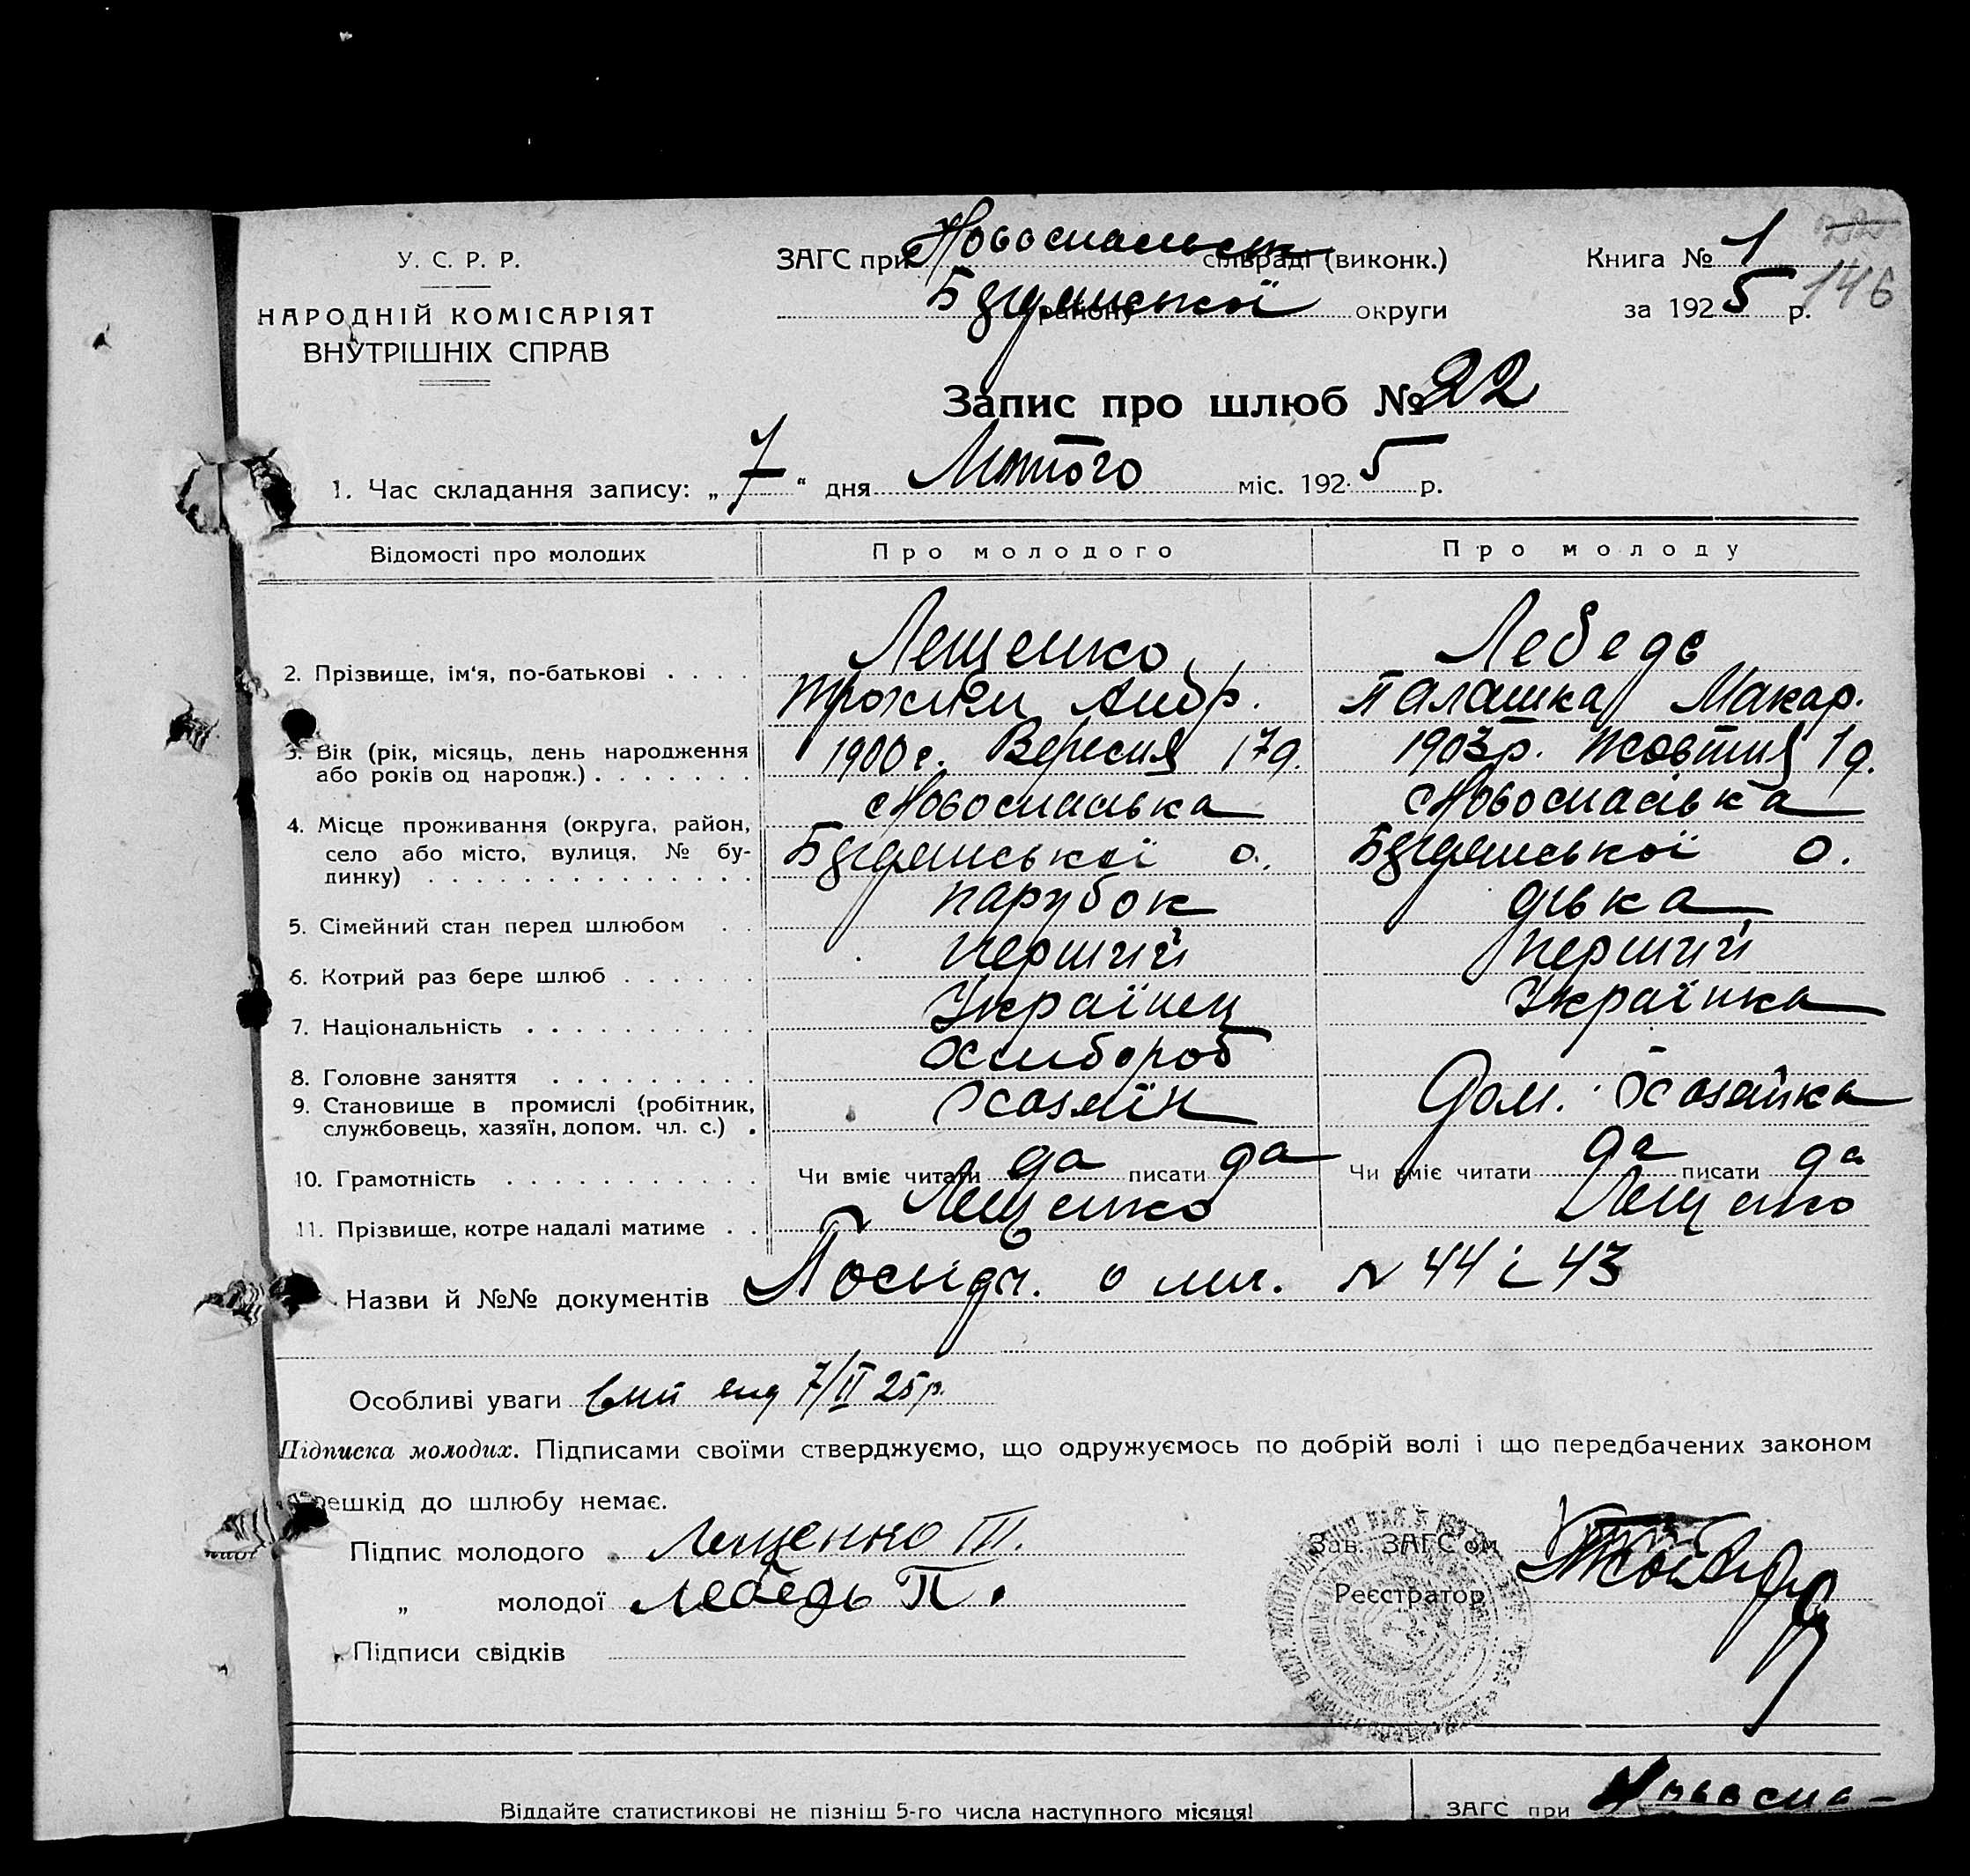 У. С. Р. Р.
НАРОДНІЙ КОМІСАРІЯТ
ВНУТРІШНІХ СПРАВ
ЗАГС при Новоспаськ сільраді (виконк.)
району округи
Книга № 1
146
за 1925 р.
Запис про шлюб № 22
1. Час складання запису: „7“ дня Лютого міс. 1925 р.
Відомості про молодих Про молодого Про молоду
2. Прізвище, ім‘я, по-батькові . . . . Лещенко Лебедь
Андр. Палашка Макар.
3. Вік (рік, місяць, день народження
або років од народж.) . . . . . . . 1900 Вересня 17д. 1903р. Жовтня 1д.
Новоспаська Новоспаська
4. Місце проживання (округа, район,
село або місто, вулиця, № бу-
динку) . . . . . . . . . . . . . . о. о.
5. Сімейний стан перед шлюбом . . парубок дівка
6. Котрий раз бере шлюб . . . . . . перший перший
7. Національність . . . . . . . . . . Українец Українка
8. Головне заняття . . . . . . . . . Хлибороб
9. Становище в промислі (робітник,
службовець, хазяїн, допом. чл. с.) . Хозяїн Дом. Хозяйка
10. Грамотність . . . . . . . . . . . Чи вміє читати да писати да Чи вміє читати да писати да
11. Прізвище, котре надалі матиме . . Лещенко Лещенко
Назви й №№ документів Посьідч. о лич. № 44 і 43
Особливі уваги 7/II 25р.
Підписка молодих. Підписами своїми стверджуємо, що одружуємось по добрій волі і що передбачених законом
решкід до шлюбу немає.
Підпис молодого Лещенко Т.
„ молодої Лебедь П.
Підписи свідків
Зав. ЗАГС'ом
Реєстратор
Віддайте статистикові не пізніш 5-го числа наступного місяця!
ЗАГС при Новоспа-